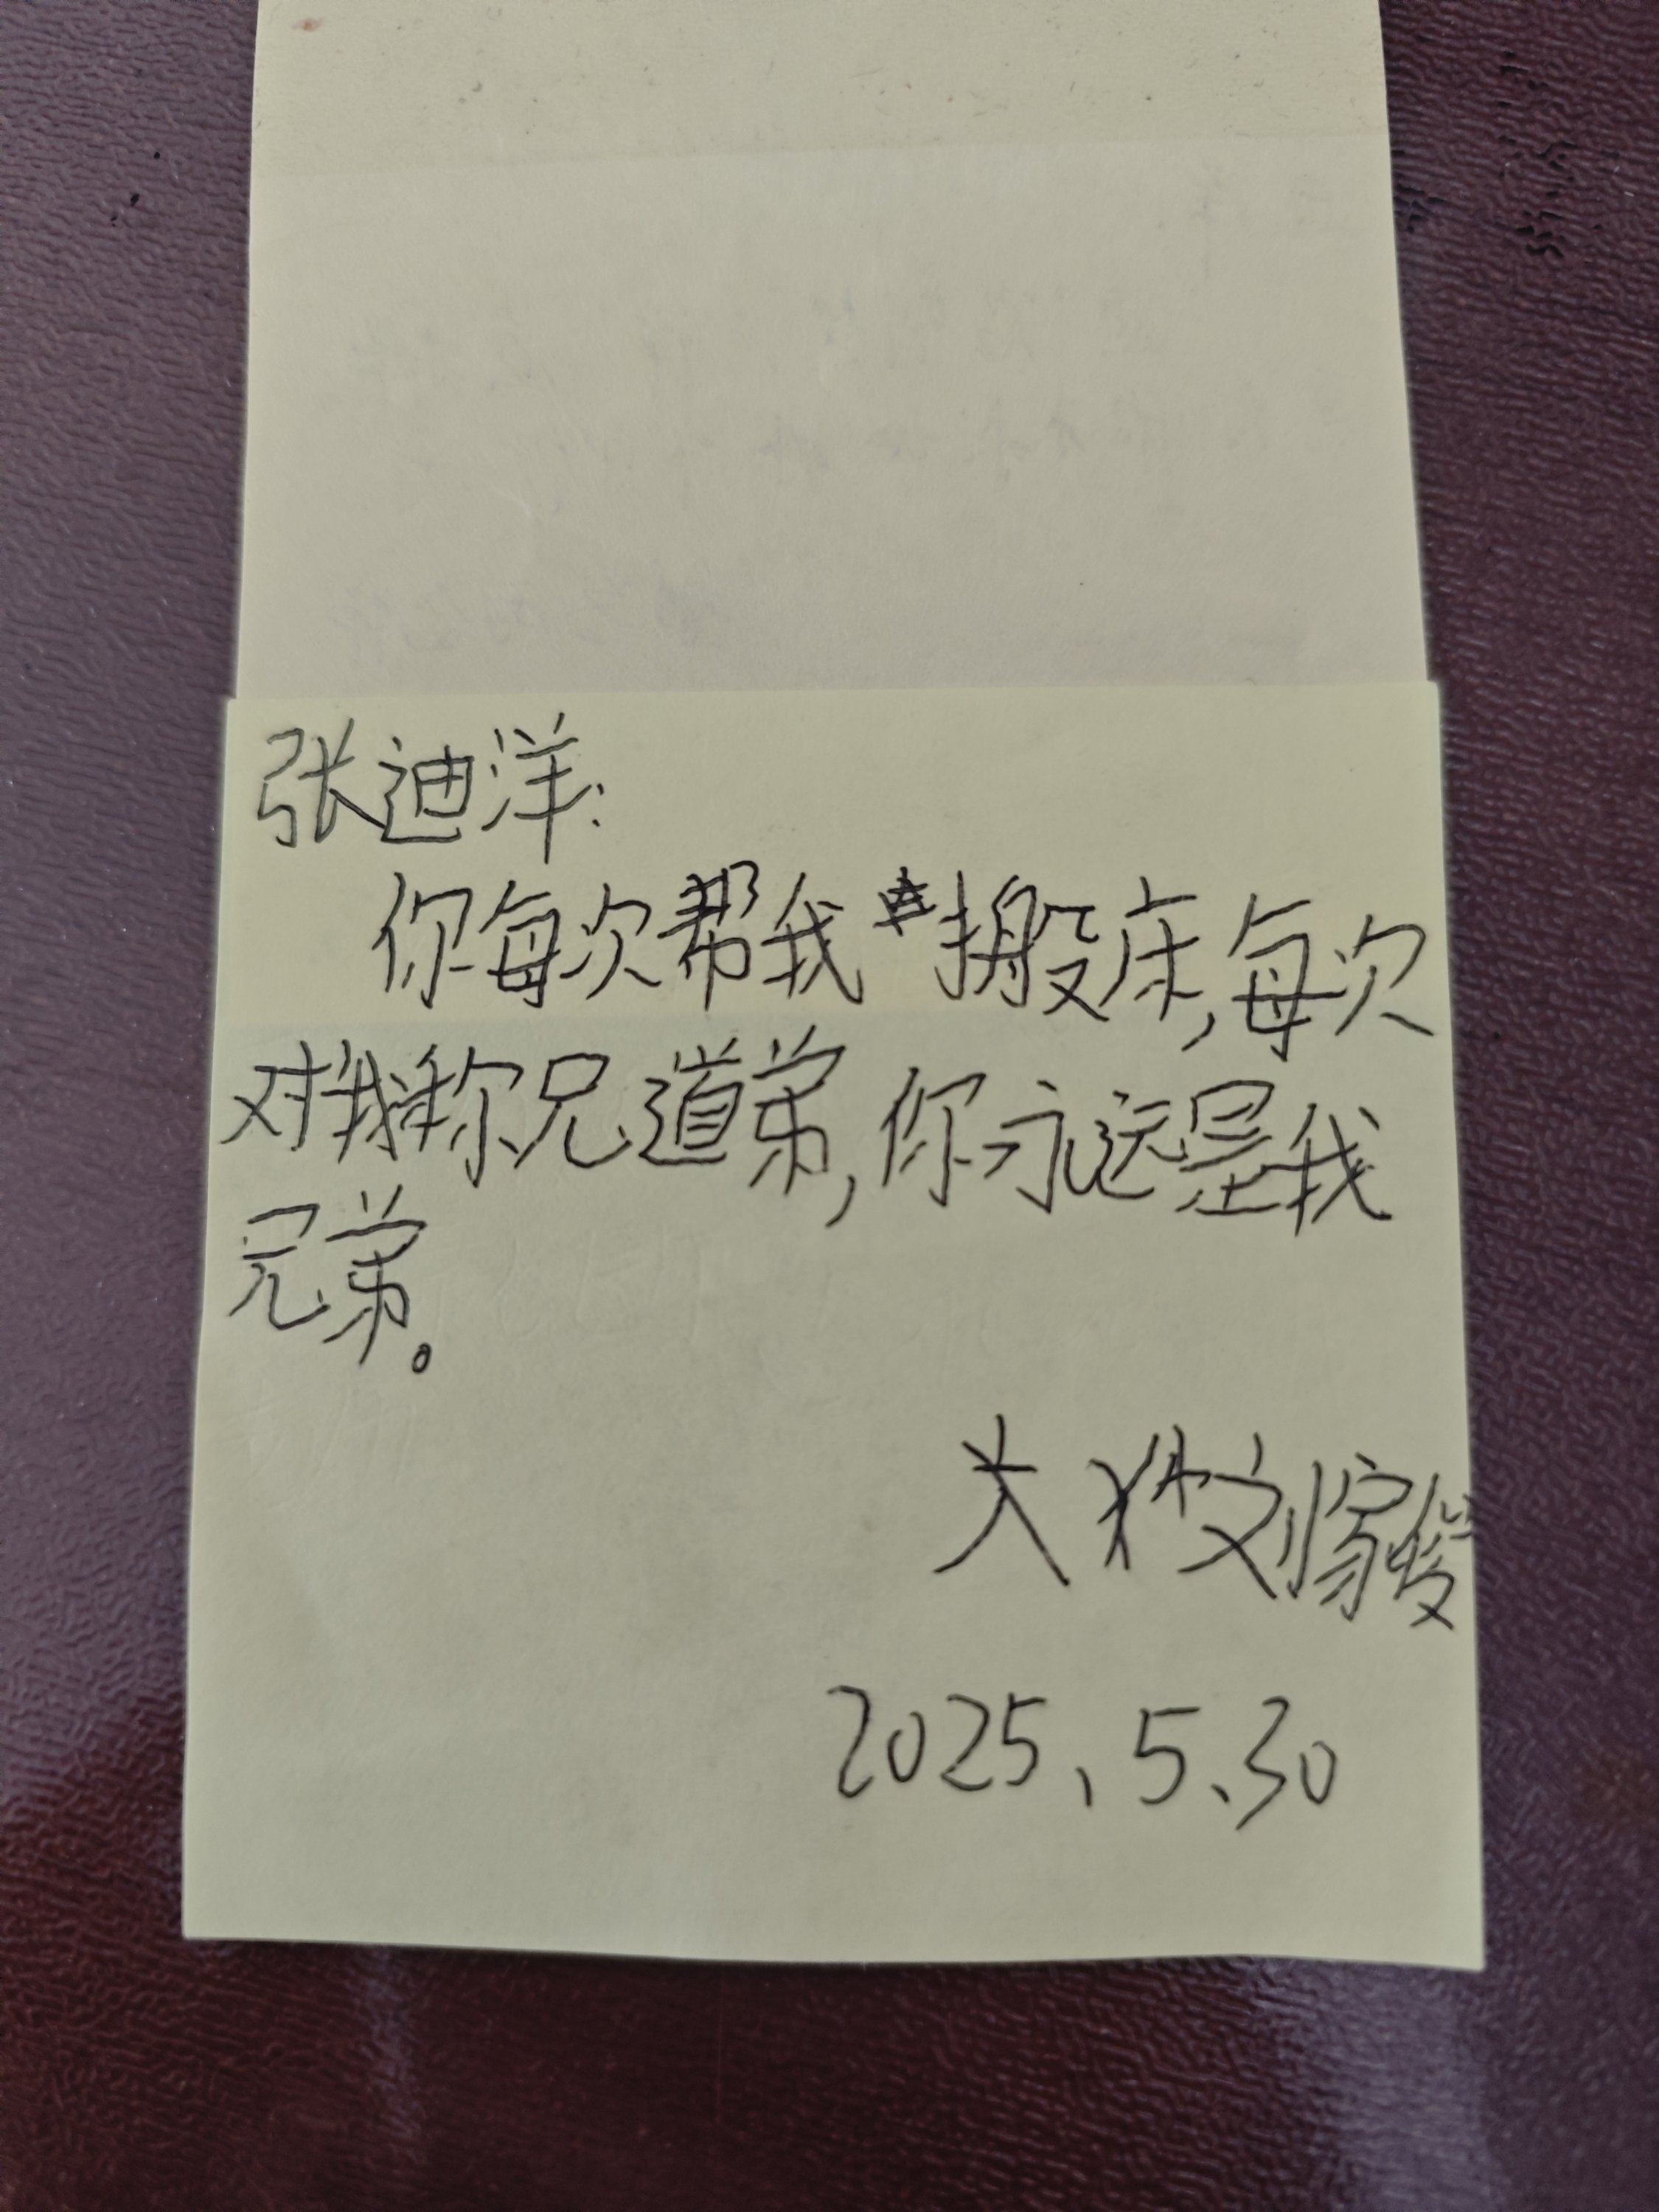 张迪洋:
你每次帮我搬床,每次
对我称兄道弟,你永远是我
兄弟。
刘家俊
2025、5、30